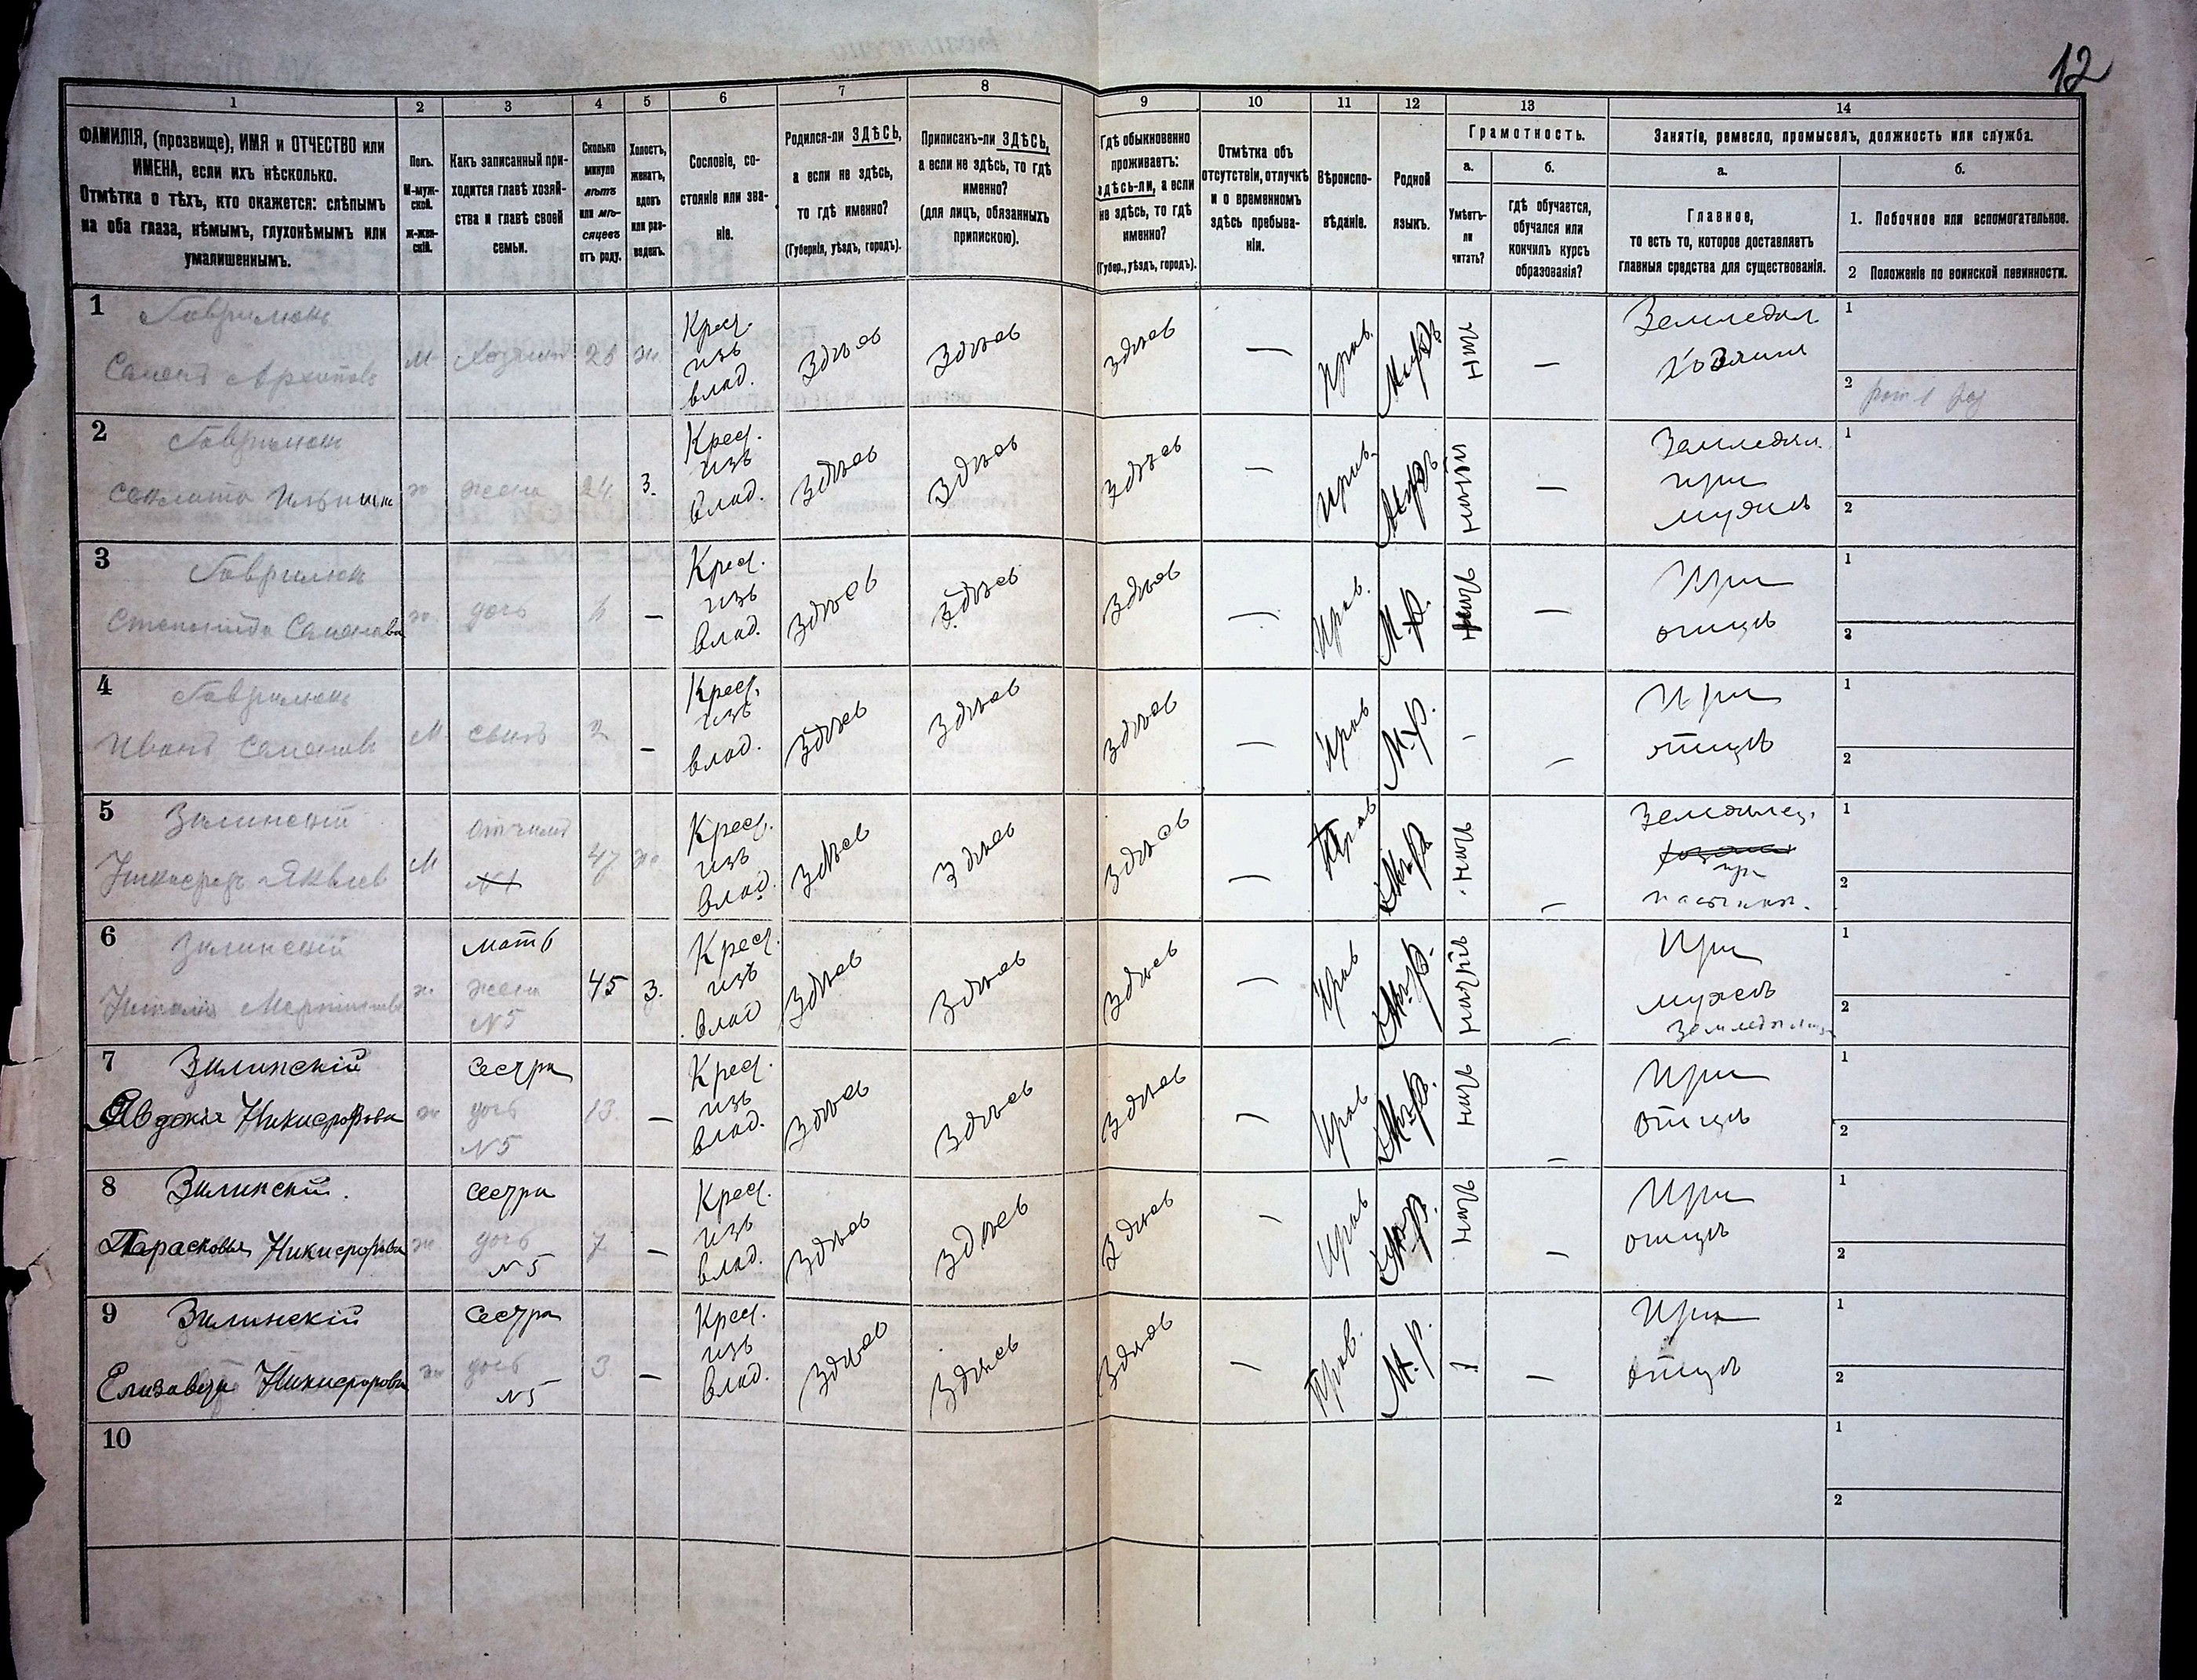 12
1 2 3 4 5 6 7 8 9 10 11 12 13 14
ФАМИЛІЯ, (прозвище), ИМЯ и ОТЧЕСТВО или
ИМЕНА, если ихъ нѣсколько.
Отмѣтка о тѣхъ, кто окажется: слѣпымъ
на оба глаза, нѣмымъ, глухонѣмымъ или
умалишеннымъ.
Полъ.
М-муж-
ской.
ж-жен-
скій.
Какъ записанный при-
ходится главѣ хозяй-
ства и главѣ своей
семьи.
Сколько
минуло
лѣтъ
или мѣ-
сяцевъ
отъ роду.
Холостъ,
женатъ,
вдовъ
или раз-
веденъ.
Сословіе, со-
стояніе или зва-
ніе.
Родился-ли ЗДѢСЬ,
а если не здѣсь,
то гдѣ именно?
(Губернія, уѣздъ, городъ).
Приписанъ-ли ЗДѢСЬ,
а если не здѣсь, то гдѣ
именно?
(для лицъ, обязанныхъ
припискою).
Гдѣ обыкновенно
проживаетъ:
здѣсь-ли, а если
не здѣсь, то гдѣ
именно?
(Губер., уѣздъ, городъ).
Отмѣтка объ
отсутствіи, отлучкѣ
и о временномъ
здѣсь пребыва-
ніи.
Вѣроиспо-
вѣданіе.
Родной
языкъ.
Грамотность.
а.
Умѣетъ-
ли
читать?
б.
гдѣ обучается,
обучался или
кончилъ курсъ
образованія?
Занятіе, ремесло, промыселъ, должность или служба.
а.
Главное,
то есть то, которое доставляетъ
главныя средства для существованія.
б.
1. Побочное или вспомогательное.
2 Положеніе по воинской повинности.
1 Гаврилюкъ
Семенъ Архиповъ
м Хозяинъ 28 ж.
Крес.
изъ
влад.
Здѣсь Здѣсь Здѣсь — Прав. Мир нѣтъ —
Земледѣл
хозяинъ
1
2
2 Гаврилюкъ
ж жена 24 З.
Крес.
изъ
влад.
Здѣсь Здѣсь Здѣсь — Прав. —
Земледѣл.
при
мужѣ
1
2
3 Гаврилюк
Степанида Семенова
ж дочь —
Крес.
изъ
влад.
Здѣсь Здѣсь Здѣсь — Прав. М.р. нѣтъ —
При
отцѣ
1
2
4 Гаврилюкъ
Иванъ Семеновъ
М сынъ 2 —
Крес.
изъ
влад.
Здѣсь Здѣсь Здѣсь — Прав М.р. — —
При
отцѣ
1
2
5 Зилинскій
Никифоръ Яквлев
М отчимъ №1 47 ж.
Крес.
изъ
влад.
Здѣсь Здѣсь Здѣсь — Прав М.р. нѣтъ —
при
1
2
6 Зилинскій
ж.
мать
жена
№5
45 З.
Крес.
изъ
влад
Здѣсь Здѣсь Здѣсь — Прав М.р. —
При
мужѣ
1
2
7 Зилинскій
Явдокія Никифорова
ж
сестра
дочь
№5
13. —
Крес.
изъ
влад.
Здѣсь Здѣсь Здѣсь — Прав М.р. нѣтъ —
При
отцѣ
1
2
8 Зилинскій.
Парасковья Никифорова
ж
сестра
дочь
№5
7 —
Крес.
изъ
влад.
Здѣсь Здѣсь Здѣсь — Прав М.р. нѣтъ —
При
отцѣ
1
2
9 Зилинскій
Елизавета Никифорова
ж
сестра
дочь
№5
3 —
Крес.
изъ
влад.
Здѣсь Здѣсь Здѣсь — Прав. М.р. — —
При
отцѣ
1
2
10
1
2